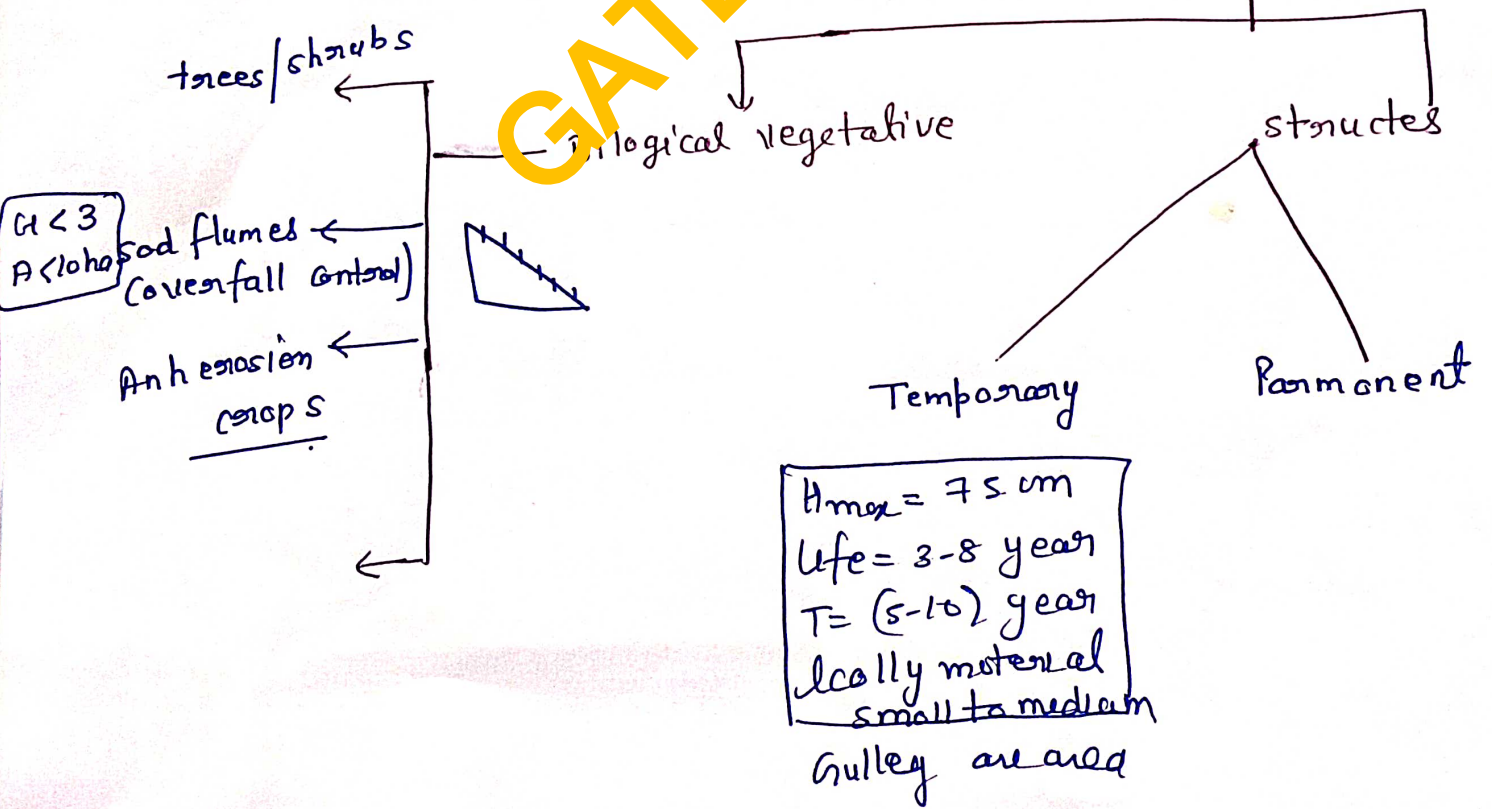 GATE
trees/shrubs
logical vegetative
structes
H < 3
A < 10ha
sod flumes
(overfall control)
erosion
crops
Temporary
Parmanent
Hmax = 75 cm
Life = 3-8 year
T= (5-10) year
lcally material
small to mediam
Gulley are area